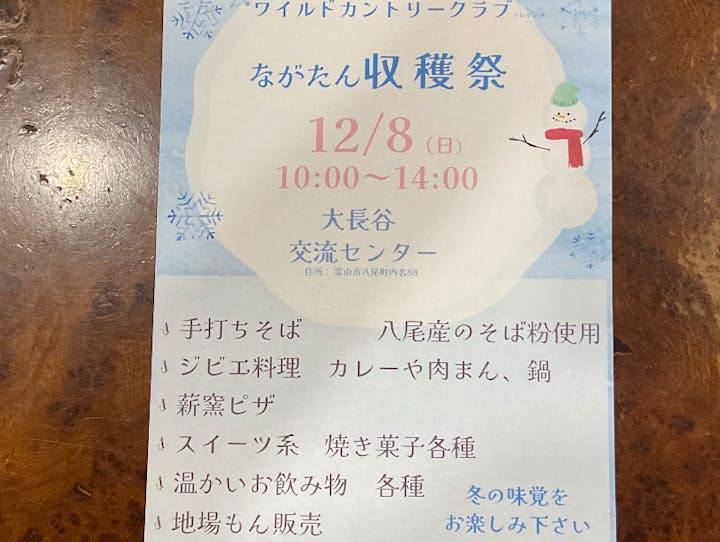 ワイルドカントリークラブプレゼンツ
ながたん収穫祭
12/8(日)
10:00〜14:00
大長谷
交流センター
住所: 富山市八尾町内名88
手打ちそば 八尾産のそば粉使用
ジビエ料理 カレーや肉まん、鍋
薪窯ピザ
スイーツ系 焼き菓子各種
温かいお飲み物 各種
地場もん販売
冬の味覚を
お楽しみ下さい